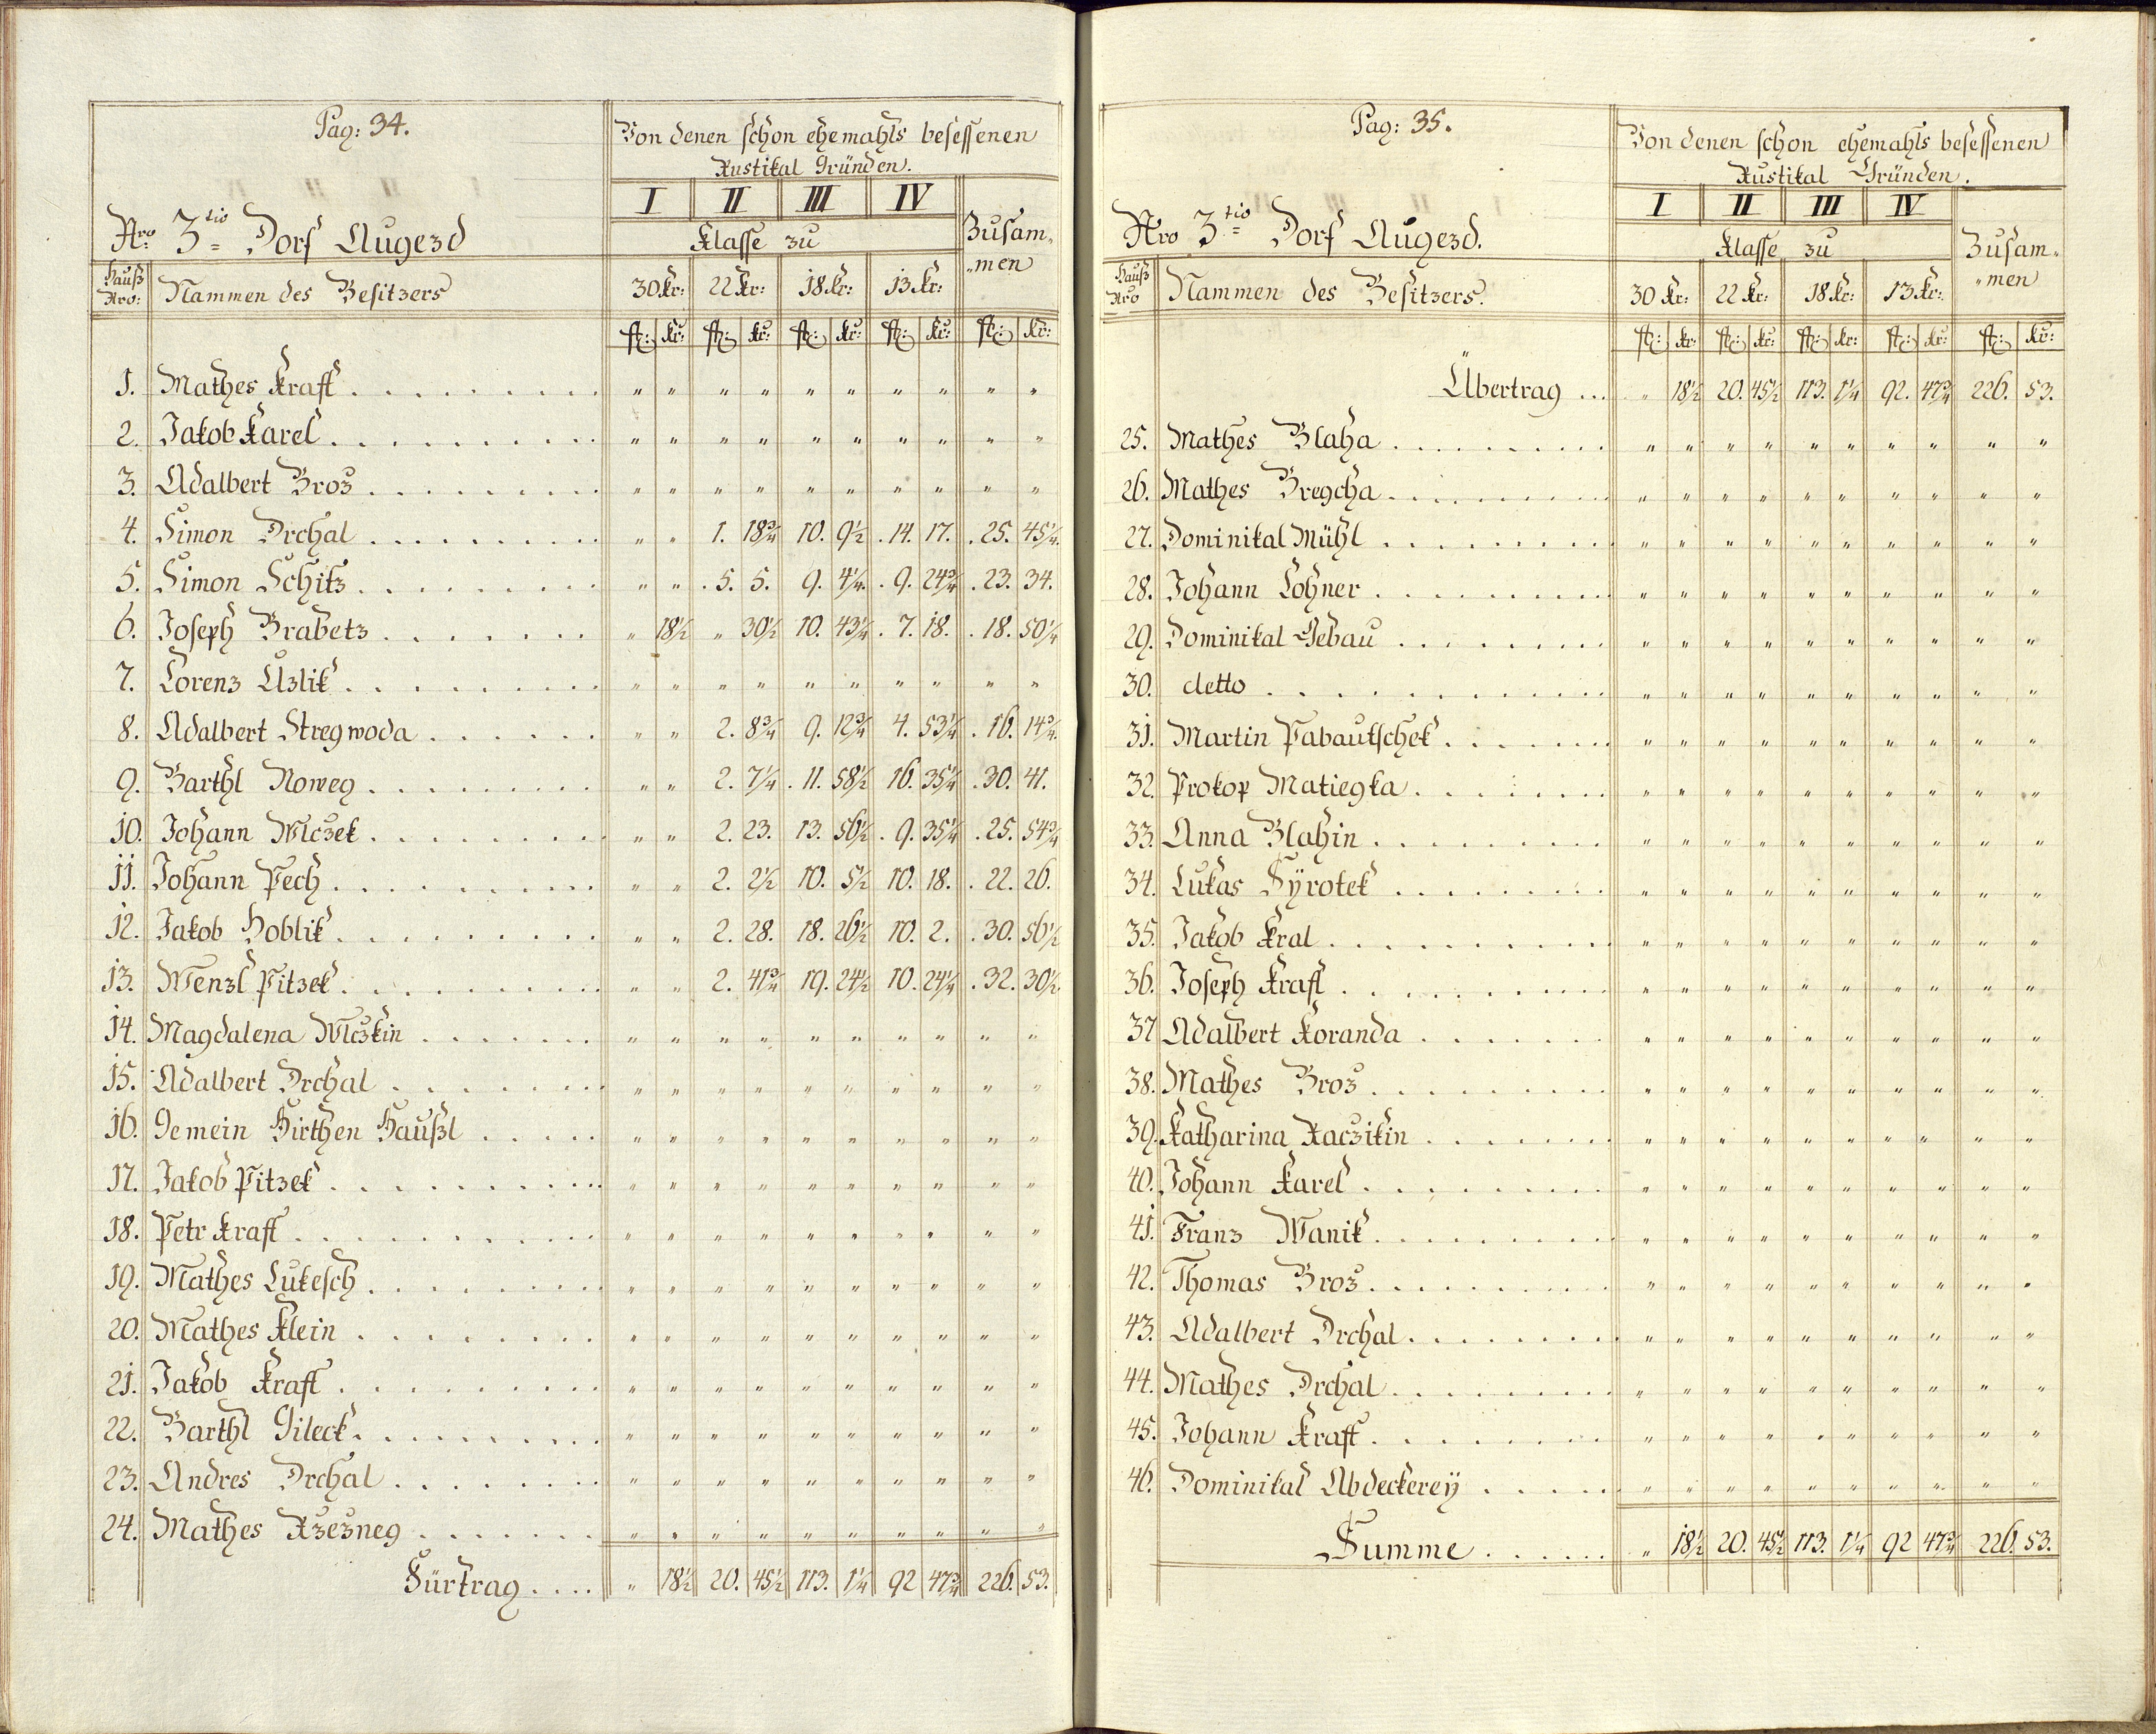 Pag: 34.
Von denen schon ehemahls besessenen
Rustikal Gründen.
I II III IV
Nro: 3tio Dorf Augezd
Klasse zu
Zusam-
-men
Hauß Nro: Nammen des Besitzers
30 Kr: 22 Kr: 18 Kr: 13 Kr:
fl: kr: fl: kr: fl: kr: fl: kr: fl: kr:
1. Mathes Kraft . . . " " " " " " " " " "
2. Jakob Karel . . . " " " " " " " " " "
3. Adalbert Broz . . . " " " " " " " " " "
4. Simon Drchal . . . " " 1. 18¾ 10. 9½ 14. 17. 25. 45¼
5. Simon Schitz . . . " " 5. 5. 9. 4¼ 9. 24¾ 23. 34.
6. Joseph Brabetz . . . " 18½ " 30½ 10. 43¼ 7. 18. 18. 50¼
7. Lorenz Uzlik . . . " " " " " " " " " "
8. Adalbert Stregwoda . . . " " 2. 8¾ 9. 12¾ 4. 53¼ 16. 14¾
9. Barthl Noweg . . . " " 2. 7¼ 11. 58½ 16. 35¼ 30. 41.
10. Johann Wlczek . . . " " 2. 23. 13. 56½ 9. 35¼ 25. 54¾
11. Johann Pech . . . " " 2. 2½ 10. 5½ 10. 18. 22. 26.
12. Jakob Hoblik . . . " " 2. 28. 18. 26½ 10. 2. 30. 56½
13. Wenzl Pitzek . . . " " 2. 41¾ 19. 24½ 10. 24¼ 32. 30½
14. Magdalena Wlczkin . . . " " " " " " " " " "
15. Adalbert Drchal . . . " " " " " " " " " "
16. Gemein Hirthen Haußl . . . " " " " " " " " " "
17. Jakob Pitzek . . . " " " " " " " " " "
18. Petr Kraft . . . " " " " " " " " " "
19. Mathes Lukesch . . . " " " " " " " " " "
20. Mathes Klein . . . " " " " " " " " " "
21. Jakob Kraft . . . " " " " " " " " " "
22. Barthl Gileck . . . " " " " " " " " " "
23. Andres Drchal . . . " " " " " " " " " "
24. Mathes Rzezneg . . . " " " " " " " " " "
Fürtrag . . . . " 18½ 20. 45½ 113. 1¼ 92 47¾ 226. 53.
Pag: 35.
Von denen schon ehemahls besessenen
Rustikal Gründen.
I II III IV
Nro 3tio Dorf Augezd.
Klasse zu
Zusam-
-men
Hauß Nro Nammen des Besitzers.
30 Kr: 22 Kr: 18 Kr: 13 Kr:
fl: kr: fl: kr: fl: kr: fl: kr: fl: kr:
Übertrag . . . " 18½ 20. 45½ 113. 1¼ 92. 47¾ 226. 53.
25. Mathes Blaha . . . " " " " " " " " " "
26. Mathes Bregcha . . . " " " " " " " " " "
27. Dominikal Mühl . . . " " " " " " " " " "
28. Johann Lohner . . . " " " " " " " " " "
29. Dominikal Gebau . . . " " " " " " " " " "
30. detto . . . " " " " " " " " " "
31. Martin Pabautschek . . . " " " " " " " " " "
32. Prokop Matiegka . . . " " " " " " " " " "
33. Anna Blahin . . . " " " " " " " " " "
34. Lukas Sÿrotek . . . " " " " " " " " " "
35. Jakob Kral . . . " " " " " " " " " "
36. Joseph Kraft . . . " " " " " " " " " "
37 Adalbert Koranda . . . " " " " " " " " " "
38. Mathes Broz . . . " " " " " " " " " "
39. Katharina Raczikin . . . " " " " " " " " " "
40. Johann Karel . . . " " " " " " " " " "
41. Franz Wanik . . . " " " " " " " " " "
42. Thomas Broz . . . " " " " " " " " " "
43. Adalbert Drchal . . . " " " " " " " " " "
44. Mathes Drchal . . . " " " " " " " " " "
45. Johann Kraft . . . " " " " " " " " " "
46. Dominikal Abdeckereÿ . . . " " " " " " " " " "
Summe . . . . " 18½ 20. 45½ 113. 1¼ 92 47¾ 226. 53.